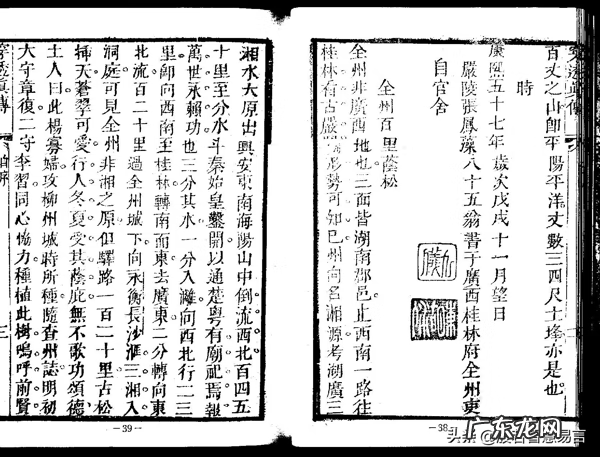 穿透眞傳
百丈之山卽平陽平洋丈數三四尺土埄亦是也
時
康熙五十七年歲次戊戌十一月望日
嚴陵張鳳藻八十五翁書于廣西桂林府全州東
自官舍
全州百里蔭松
全州非廣西地也三面皆湖南郡邑止西南一路往
桂林有古嚴
形勢可知已州向名湘源考湖廣三
-38-
湘水大原出興安東南海陽山中倒流西北百四五
十里至分水斗秦始皇鑿開以通楚粵有廟祀焉報
萬世永賴功也三分其水一分入灕向西北行二三
里卽向西南至桂林轉南而東去廣東二分轉向東
北流百二十里過全州城下向永衡長沙滙三湘入
洞庭可見全州非湘之原但驛路一百二十里古松
挿天蒼翠可愛行人冬夏受其蔭庇無不歌功頌德
土人曰此楊寡婦攻柳州城時所種隨查州誌明初
大守章復二守李習同心協力種植此樹嗚呼前賢
穿透眞傳
自序
三
-39-
头条
广东龙网
www.gdcyl.org